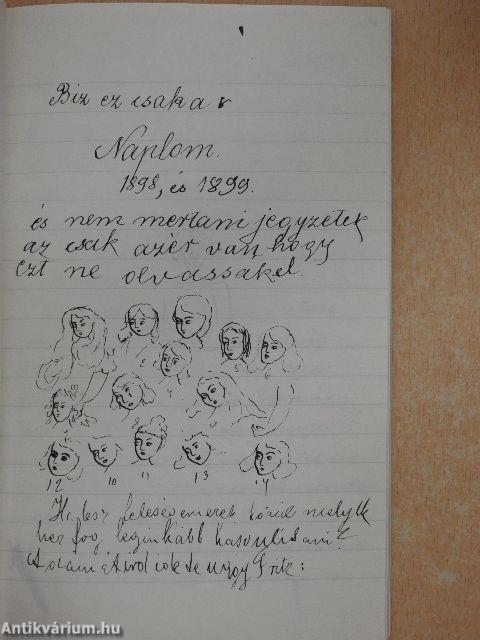 Biz ez csak a
Naplom.
1898, és 1899.
és nem mertani jegyzetek
az csak azér van hogy
ezt ne olvassák el.
2
4
5
6
12
10
11
13
14
lesz feleségemeret közül melyik
hez fog leginkább hasonlitani?
Fritz:
Antikvárium.hu